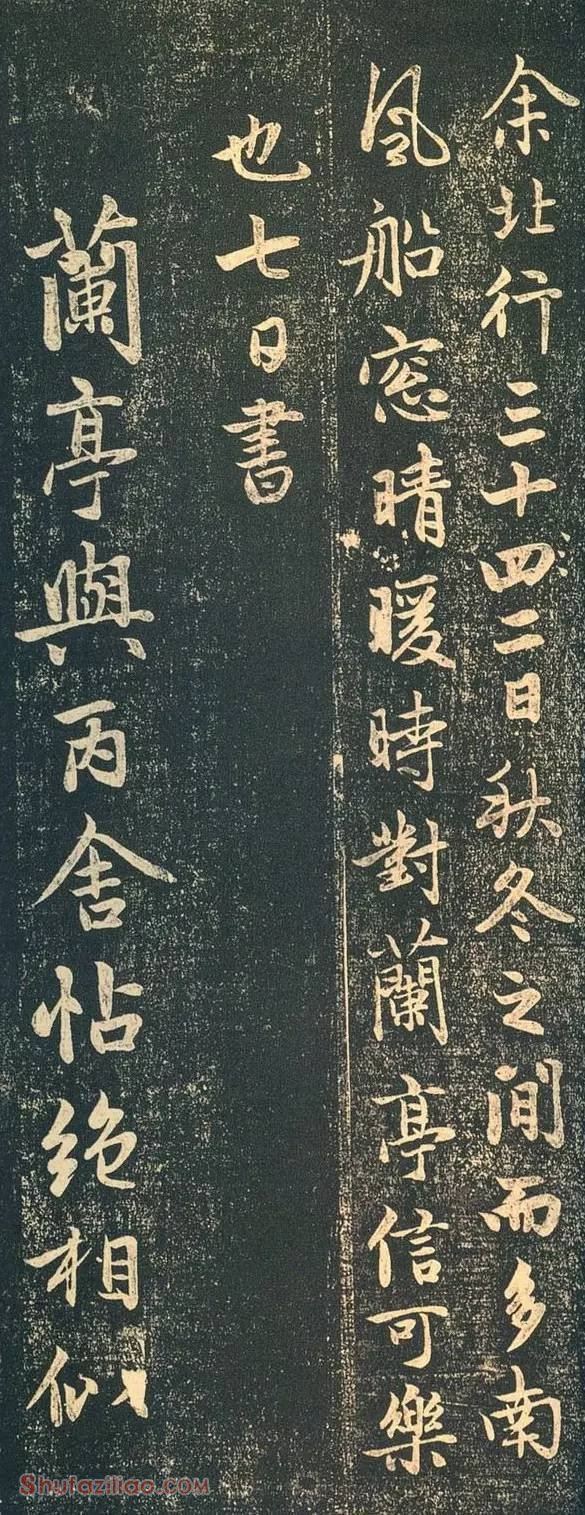 余北行三十四二日秋冬之間而多南
風船窓晴暖時對蘭亭信可樂
也七日書
蘭亭與丙舍帖絶相似
Shufaziliao.com